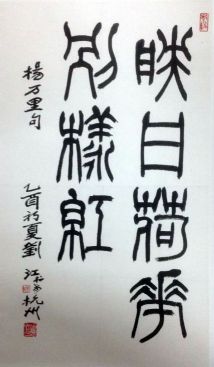 映日荷華
別樣紅
楊万里句
乙酉初夏劉江於杭州